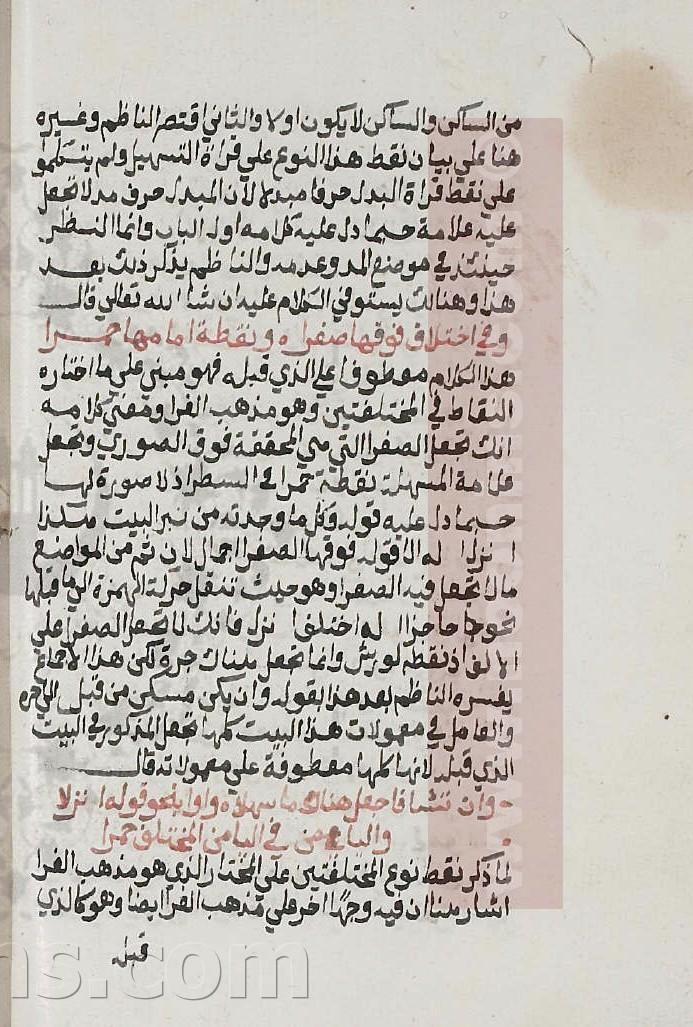 من الساكن والساكن لا يكون اولا والثاني اقتصر الناظم وغيره
هنا علي بيان نقط هذا النوع علي قراة التسهيل ولم يتكلموا
علي نقط قراة البدل حرفا مبدلا لان المبدل حرف مد لا تجعل
عليه علامة حسبما دل عليه كلامه اول الباب وانما النظر
حينئذ في موضع المد وعدمه والناظم يذكر ذلك بعد
هذا وهنالك يستوفي الكلام عليه ان شا الله تعالي قال
وفي اختلاف فوقها صفراه ونقطة امامها حمرا
هذا الكلام معطوفا علي الذي قبله فهو مبني علي ما اختاره
النقاط في المختلفتين وهو مذهب الفرا ومعني كلامه
انك تجعل الصفرا التي هي المحققة فوق الصوري وتجعل
علامة المسهلة نقطة حمرا في السطر اذ لا صورة لها
حسبما دل عليه قوله وكل ما وجدته من نبر البيت هكذا
ا نزل له الا قوله فوقها الصفرا اجمال لان ثم من المواضع
ما لا تجعل فيه الصفرا وهو حيث تنقل حركة الهمزة الي ما قبلها
نحو حاجزا ا له اختلق ا نزل فانك لا تجعل الصفرا علي
الالف اذ نقطه لورش وانما تجعل هناك جرة لكن هذا الاجمال
يفسره الناظم بعد هذا بقوله وان يكن مسكن من قبل الي اخره
والعامل في معمولات هذا البيت كلها تجعل المذكور في البيت
الذي قبله لانها كلها معطوفة علي معمولاته قال
وان تشا فاجعل هناك ما سهلاه واوا بنحو قوله ا نزلا
واليا في اليا من المختلف حمرا
لما ذكر نقط نوع المختلفتين علي المختار الذي هو مذهب الفرا
اشار هنا ان فيه وجها اخر علي مذهب الفرا ايضا وهو كالذي
قبله